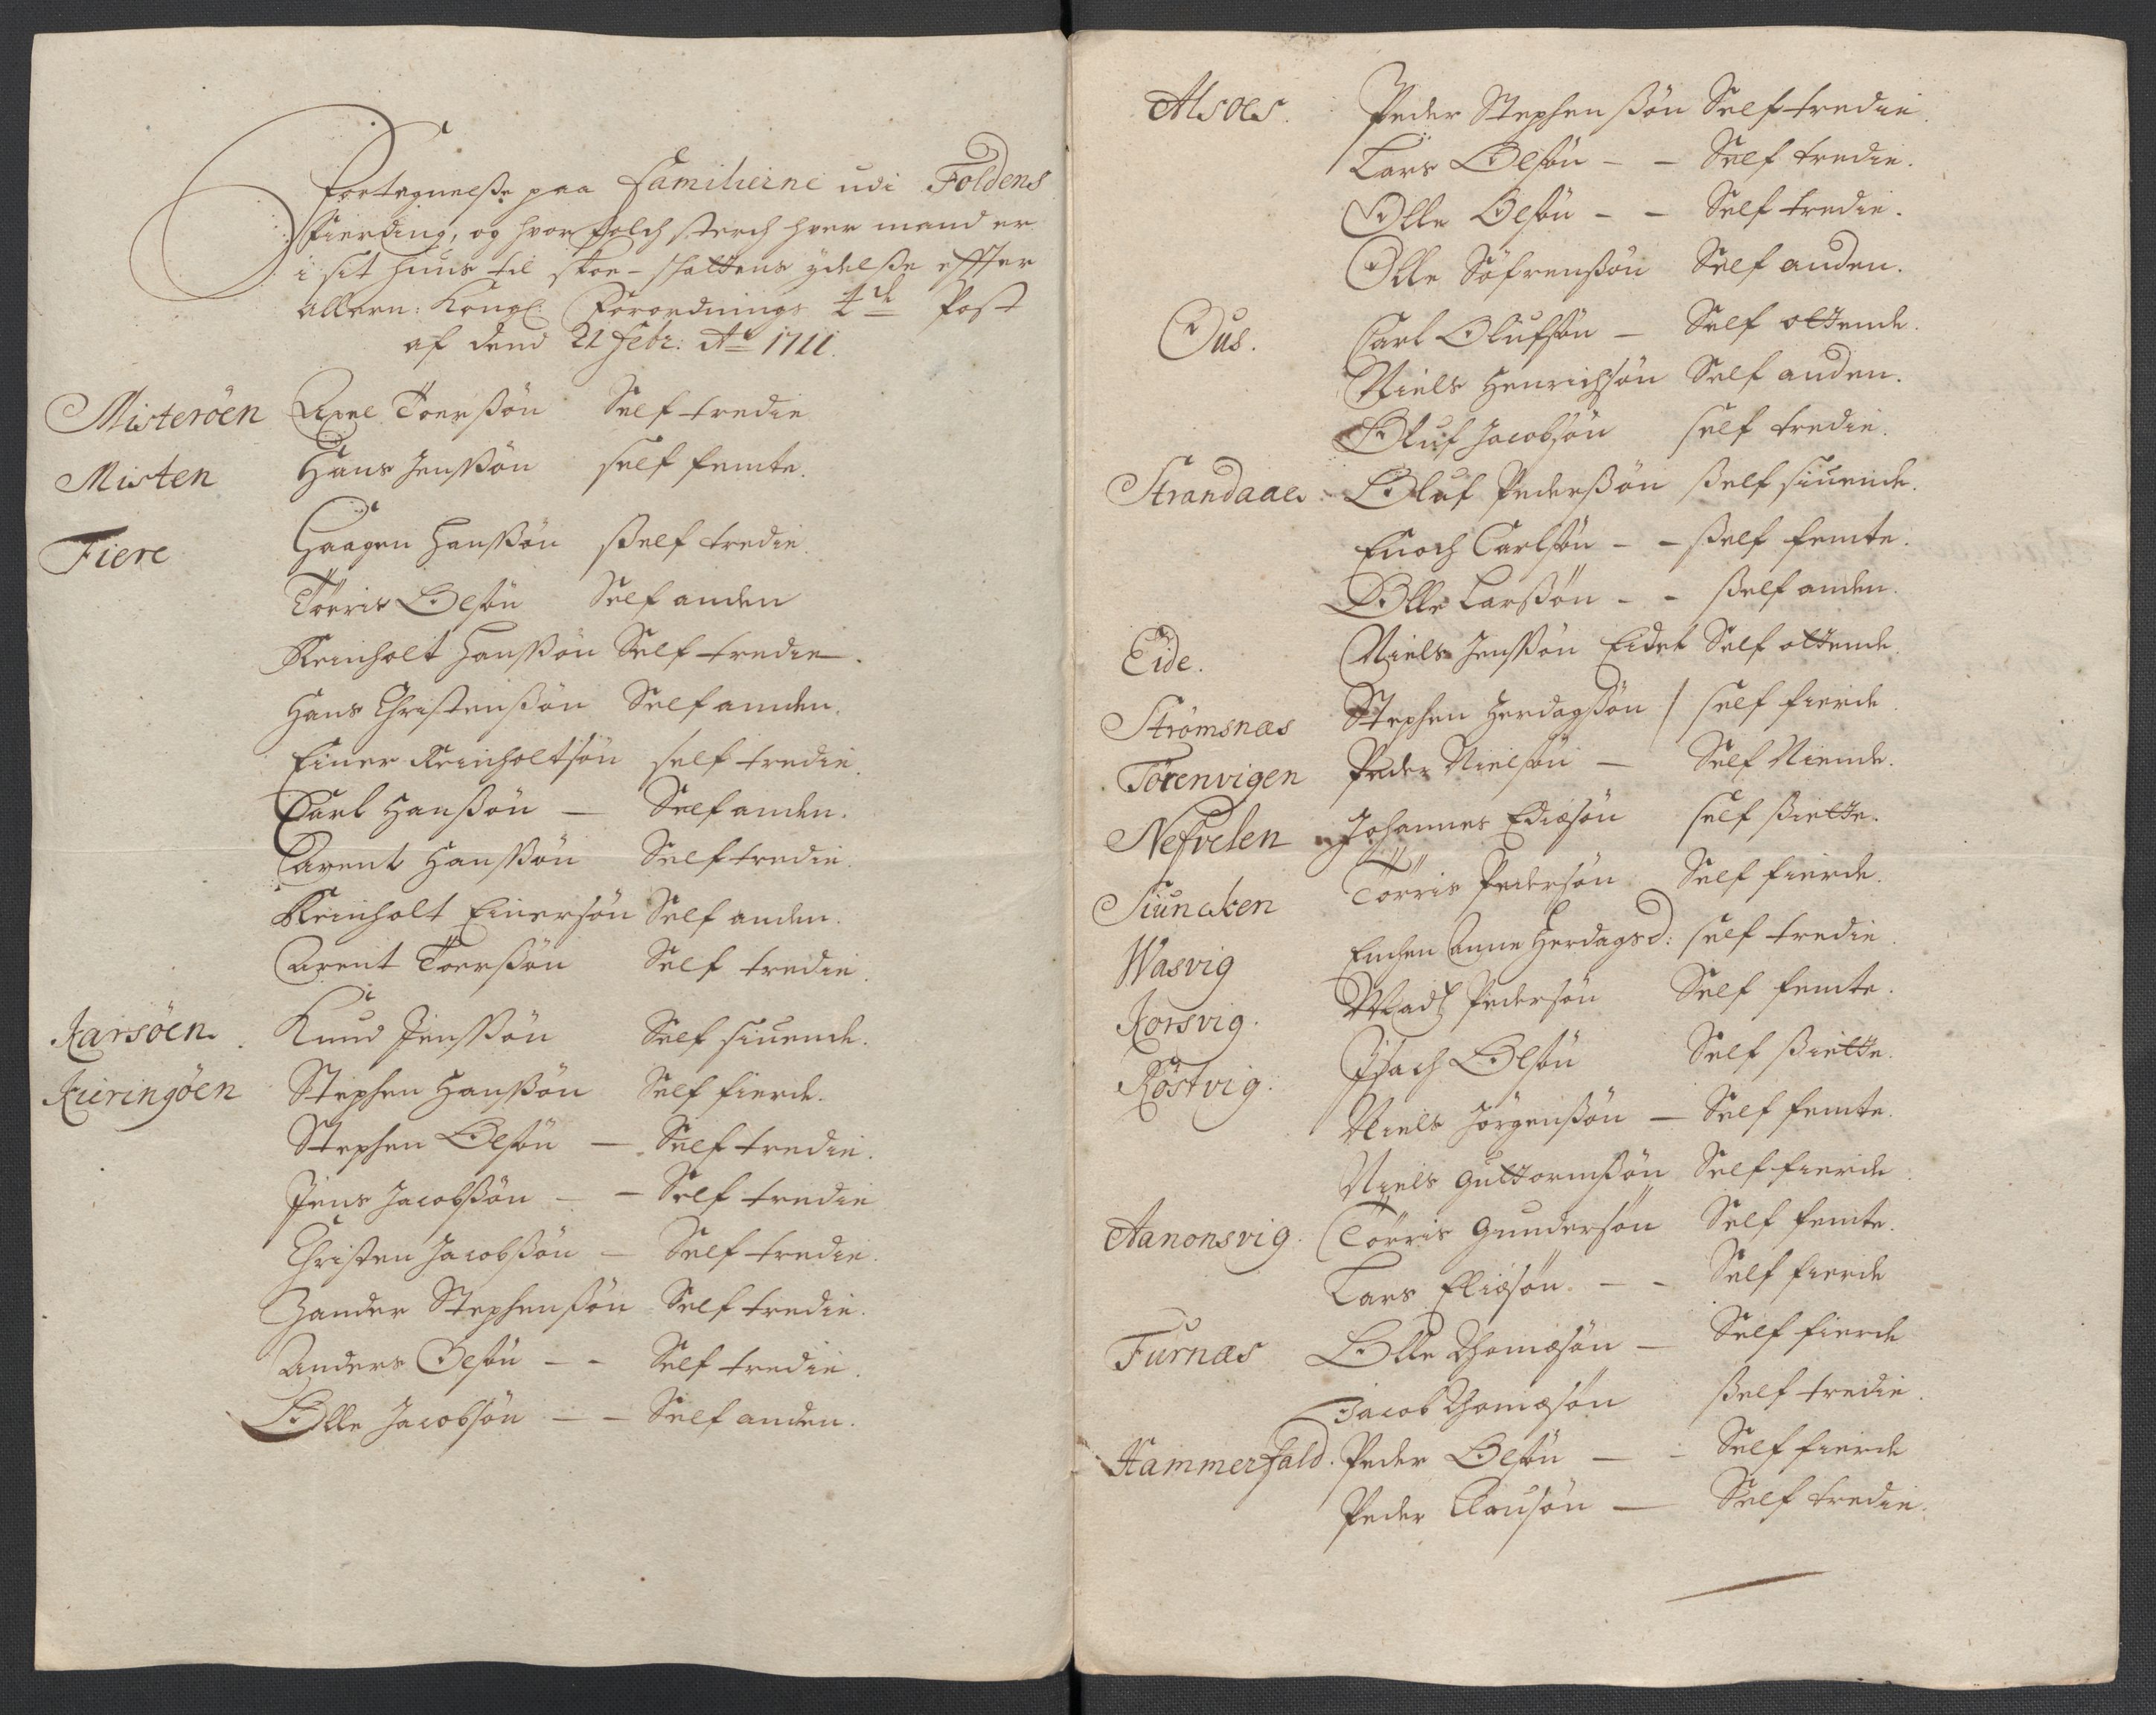 Fortegnelse paa Familierne udi Foldens
Fierding, og hvor folch sterch hver mand er
i sit huus til skoe-skattens ydelse effter
allern: Kongl: Forordnings 4de Post
af dend 21 Febr: Ao 1711.
Misterøen Axel Toersøn Self tredie
Misten Hans Jenssøn self femte.
Fiere Haagen Hanssøn sself tredie.
Törris Olsøn Self anden
Reinholt Hanssøn Self tredie.
Hans Christenssøn Self anden.
Einer Reinholtsøn self tredie.
Carl Hanssøn — Self anden.
Arent Hanssøn Self tredie.
Reinholt Einersøn Self anden.
Arent Toerssøn Self tredie.
Karsøen. Knud Jenssøn Self siuende.
Kieringøen Stephen Hanssøn Self fierde.
Stephen Olsøn — Self tredie.
Jens Jacobssøn — — Self tredie
Christen Jacobssøn — Self tredie.
Zander Stephenssøn Self tredie.
Anders Olsøn — — Self tredie.
Olle Jacobsøn — — Self anden.
Alsoes. Peder Stephenssøn Self tredie.
Lars Olsøn — — Self tredie.
Olle Olsøn — — Self tredie.
Olle Söfrenssøn Self anden.
Ous. Carl Olufsøn — Self ottende.
Niels Henrichsøn Self anden.
Oluf Jacobsøn self tredie.
Strandaae. Oluf Pederssøn sself siuende.
Enoch Carlsøn — — sself femte.
Olle Larssøn — — sself anden.
Eide. Niels Jenssøn Eidet Self ottende.
Strömsnæs Stephen Herdagssøn / self fierde.
Törenvigen Peder Nielsøn — Self Niende.
Nefvelen Johannes Ediæsøn self siette.
Siuncken Törris Pedersøn Self fierde.
Wasvig Enchen Anne Herdagsd: self tredie.
Korsvig. Mads Pedersøn Self femte.
Röstvig. Isach Olsøn Self siette.
Niels Jörgenssøn — Self femte.
Niels Guttormssøn Self fierde.
Aanonsvig. Törris Gundersøn Self femte.
Lars Eliæsøn. — — Self fierde
Furnæs Olle Thomæsøn — Self fierde
Jacob Thomæsøn sself tredie.
Hammerfald. Peder Olsøn — — Self fierde
Peder Clausøn — Self tredie.